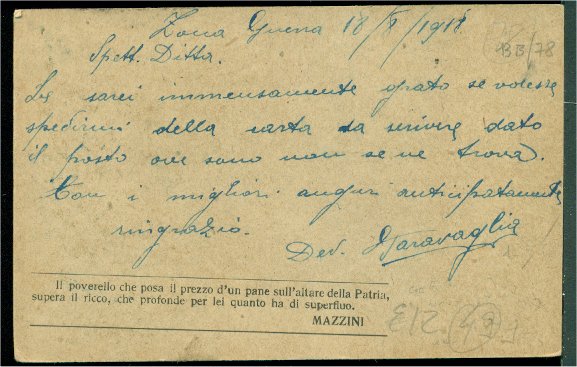 Zona Guerra 18/8/1918
Spett. Ditta.
Le sarei immensamente grato se volesse
spedirmi della carta da scrivere dato
il posto ove sono non se ne trova.
Con i migliori auguri anticipatamente
ringrazio.
Dev. Taravaglia
Il poverello che posa il prezzo d'un pane sull'altare della Patria,
supera il ricco, che profonde per lei quanto ha di superfluo.
MAZZINI
BB/78